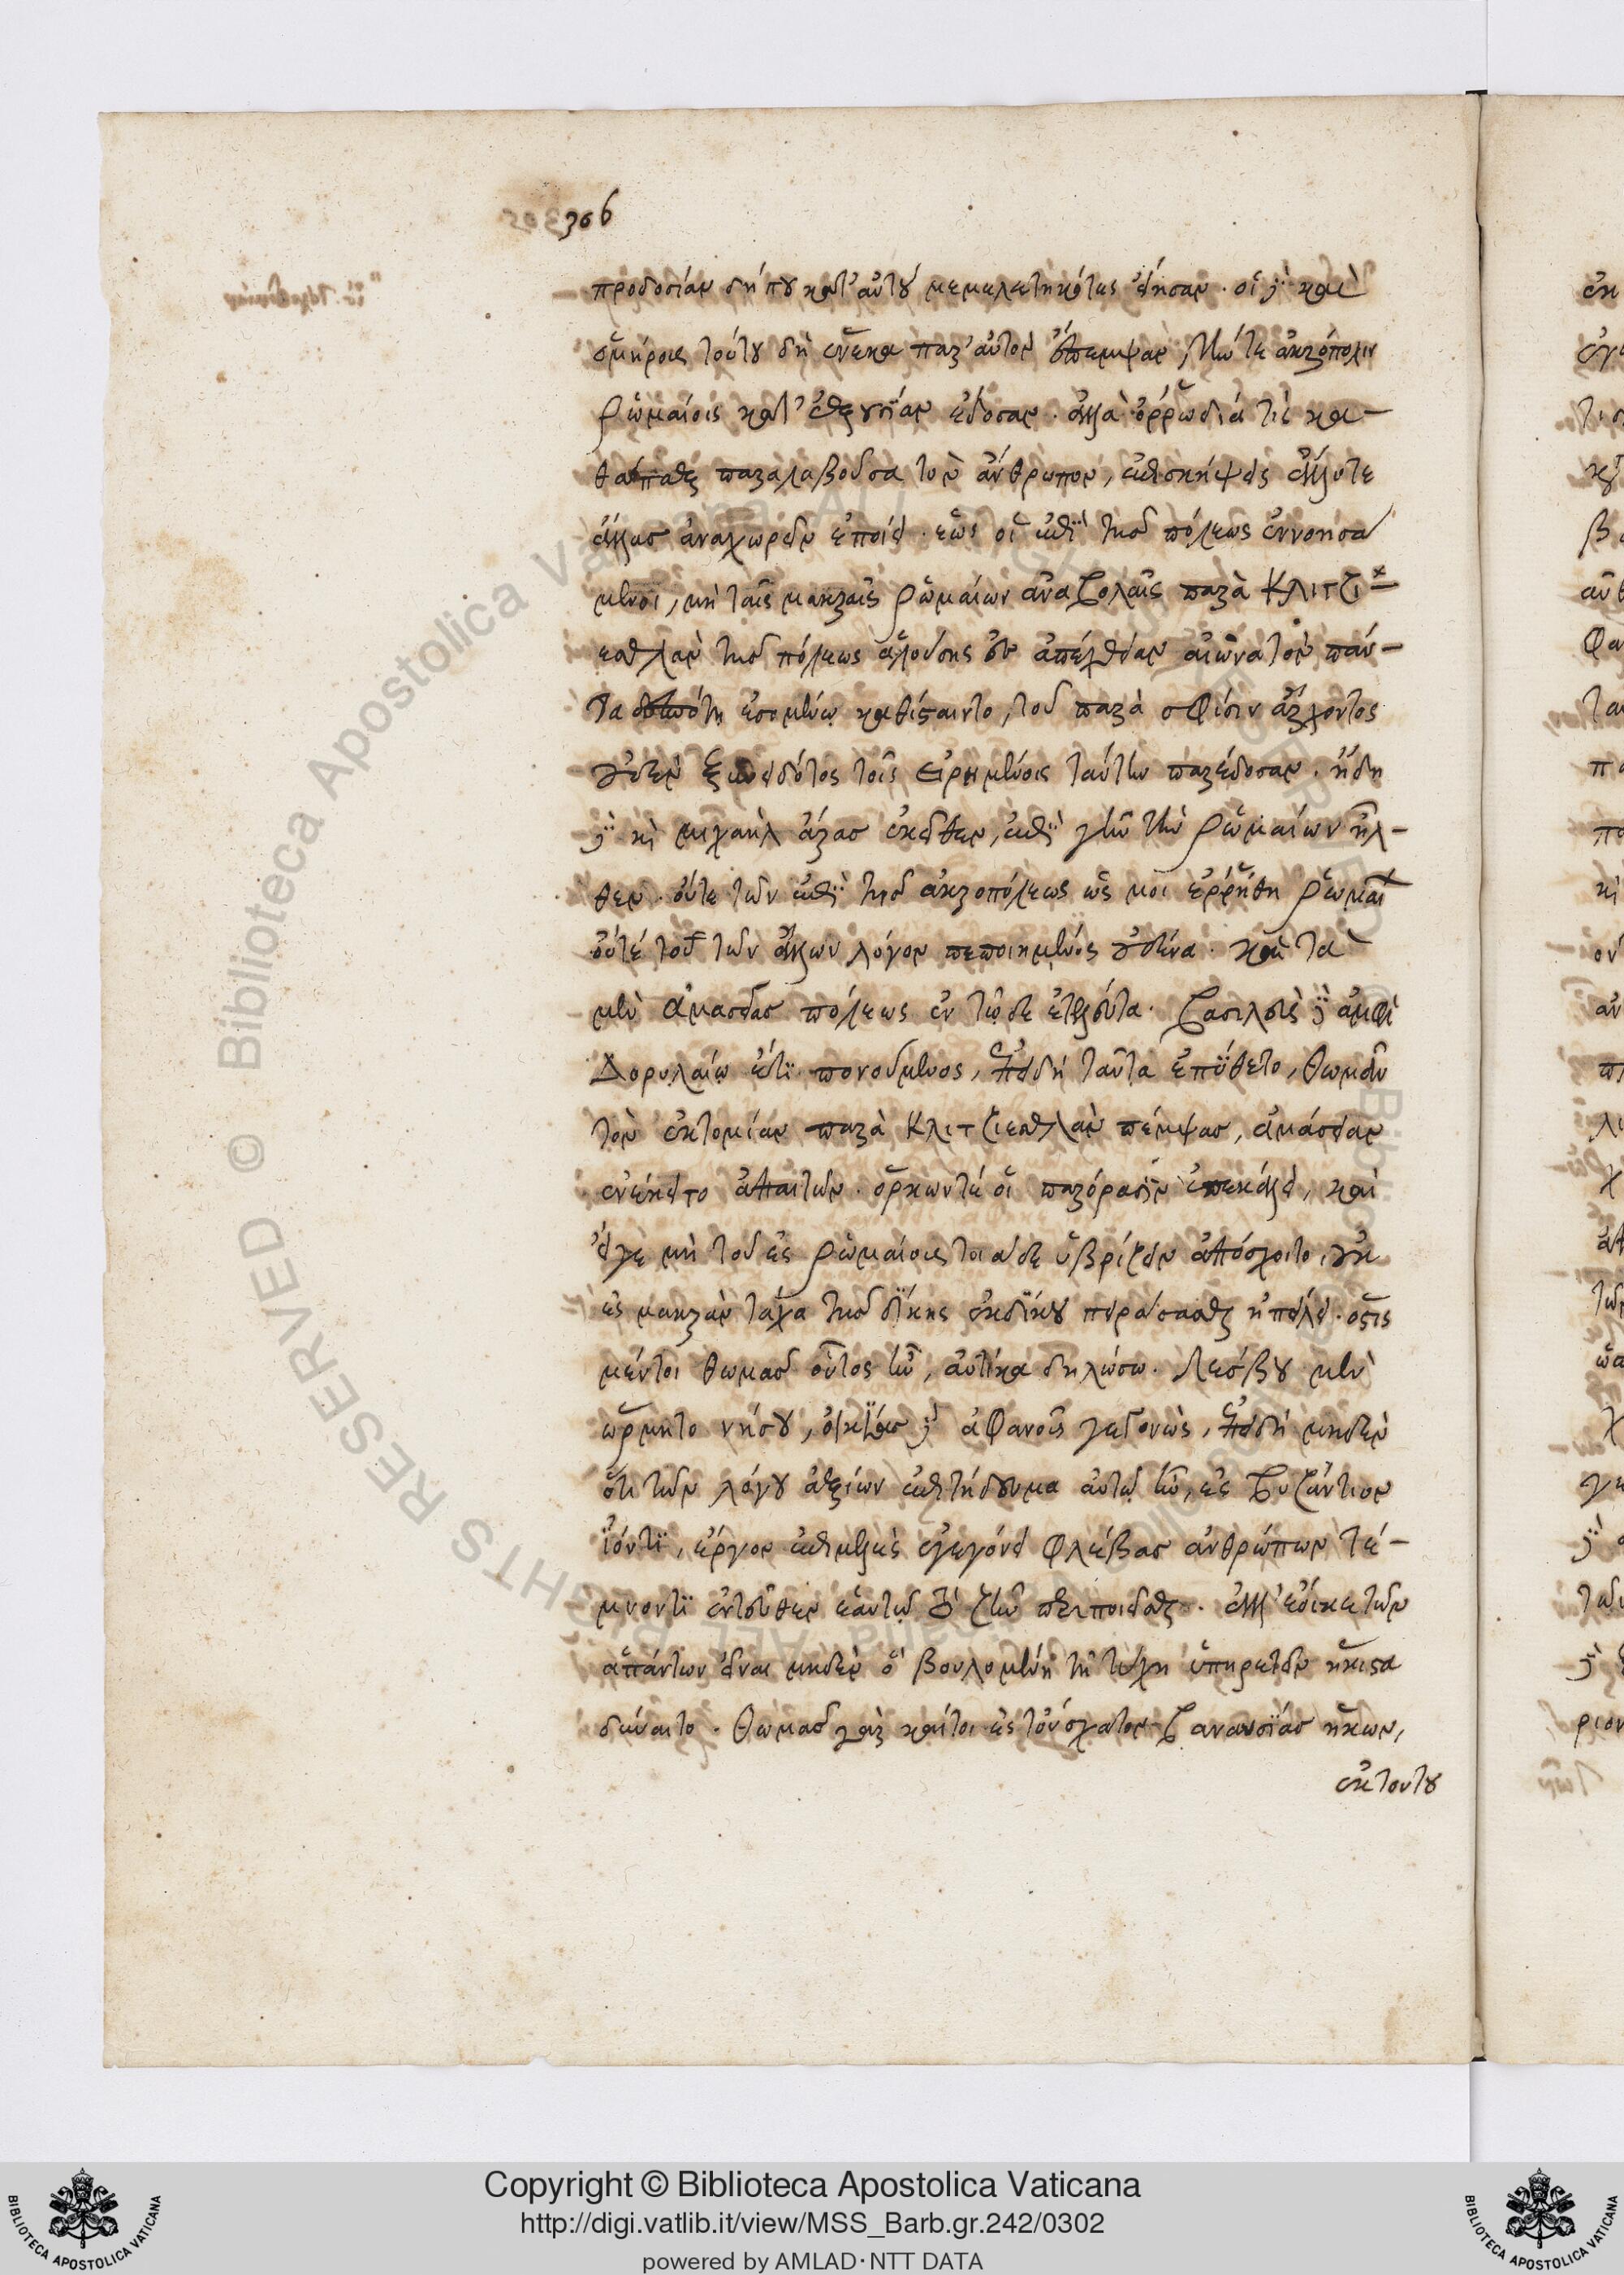 306
προδοσίαν δή που κατ' αὐτοῦ μεμελετηκότας εἴησαν. οἱ δὲ καὶ
ὁμήρους τούτου δὴ ἕνεκα παρ' αὐτὸν ἔπεμψαν, τήν τε ἀκρόπολιν
ῥωμαίοις κατ' ἐξουσίαν ἔδοσαν. ἀλλὰ ὀρρωδία τὶς κα-
θάπαξ παραλαβοῦσα τὸν ἄνθρωπον, ἐπισκήψεις ἄλλοτε
ἄλλας ἀναχωρεῖν ἐποίει. ἕως οἱ ἐπὶ τῆς πόλεως ἐννοησά
μενοι, μὴ ταῖς μακραῖς ῥωμαίων ἀναβολαῖς παρὰ Κλιτζι-
εσθλὰν τῆς πόλεως ἁλούσης ἐν ἀπεχθείαν αἰῶνα τὸν πάν-
τα δεσπότῃ ἐσομένῳ καθίσταιντο, τοῦ παρὰ σφίσιν ἄρχοντος
οὐδὲν ξυνειδότος τοῖς εἰρημένοις ταύτην παρέδοσαν. ἤδη
δὲ καὶ μιχαὴλ ἄρας ἐκεῖθεν, ἐπὶ γῆν τὴν ῥωμαίων ἦλ-
θεν. οὔτε τῶν ἐπὶ τῆς ἀκροπόλεως ὥς μοι ἐρρήθη ῥωμαί
οὔτέ του τῶν ἄλλων λόγον πεποιημένος οὐδένα. καὶ τὰ
μὲν ἀμασείας πόλεως ἐν τῷδε ἐτελεύτα. βασιλεὺς δὲ ἀμφὶ
Δορυλαίῳ ἔτι πονούμενος, ἐπειδὴ ταῦτα ἐπύθετο, θωμᾶν
τὸν ἐκτομίαν παρὰ Κλιτζιεσθλὰν πέμψας, ἀμάσειαν
ἐνέκειτο ἀπαιτῶν. ὅρκων τέ οἱ παρόρασιν ἐπεκάλει, καὶ
εἴγε μὴ τοῦ ἐς ῥωμαίους τοιάδε ὑβρίζειν ἀπόσχοιτο, οὐκ
ἐς μακρὰν τάχα τῆς δίκης ἐκδίκου πειράσασθαι ἠπείλει. ὅστις
μέντοι θωμᾶς οὗτος ἦν, αὐτίκα δηλώσω. Λέσβου μὲν
ὥρμητο νήσου, οἰκίας δὲ ἀφανοῦς γεγονὼς, ἐπειδὴ μηδὲν
ὅτι τῶν λόγου ἀξίων ἐπιτήδευμα αὐτῷ ἦν, ἐς βυζάντιον
ἰόντι, ἔργον ἐπιμελὲς ἐγεγόνει φλέβας ἀνθρώπων τέ-
μνοντι ἐντεῦθεν ἑαυτῷ τὸ ζῆν περιποιεῖσθαι. ἀλλ' ἐῴκει τῶν
ἁπάντων εἶναι μηδὲν ὃ βουλομένῃ τῇ τύχῃ ὑπηρετεῖν ἥκιστα
δύναιτο. θωμᾶς γὰρ καίτοι ἐς τοὔσχατον βαναυσίας ἥκων,
ἐκ τούτου
Copyright © Biblioteca Apostolica Vaticana
http://digi.vatlib.it/view/MSS_Barb.gr.242/0302
powered by AMLAD·NTT DATA